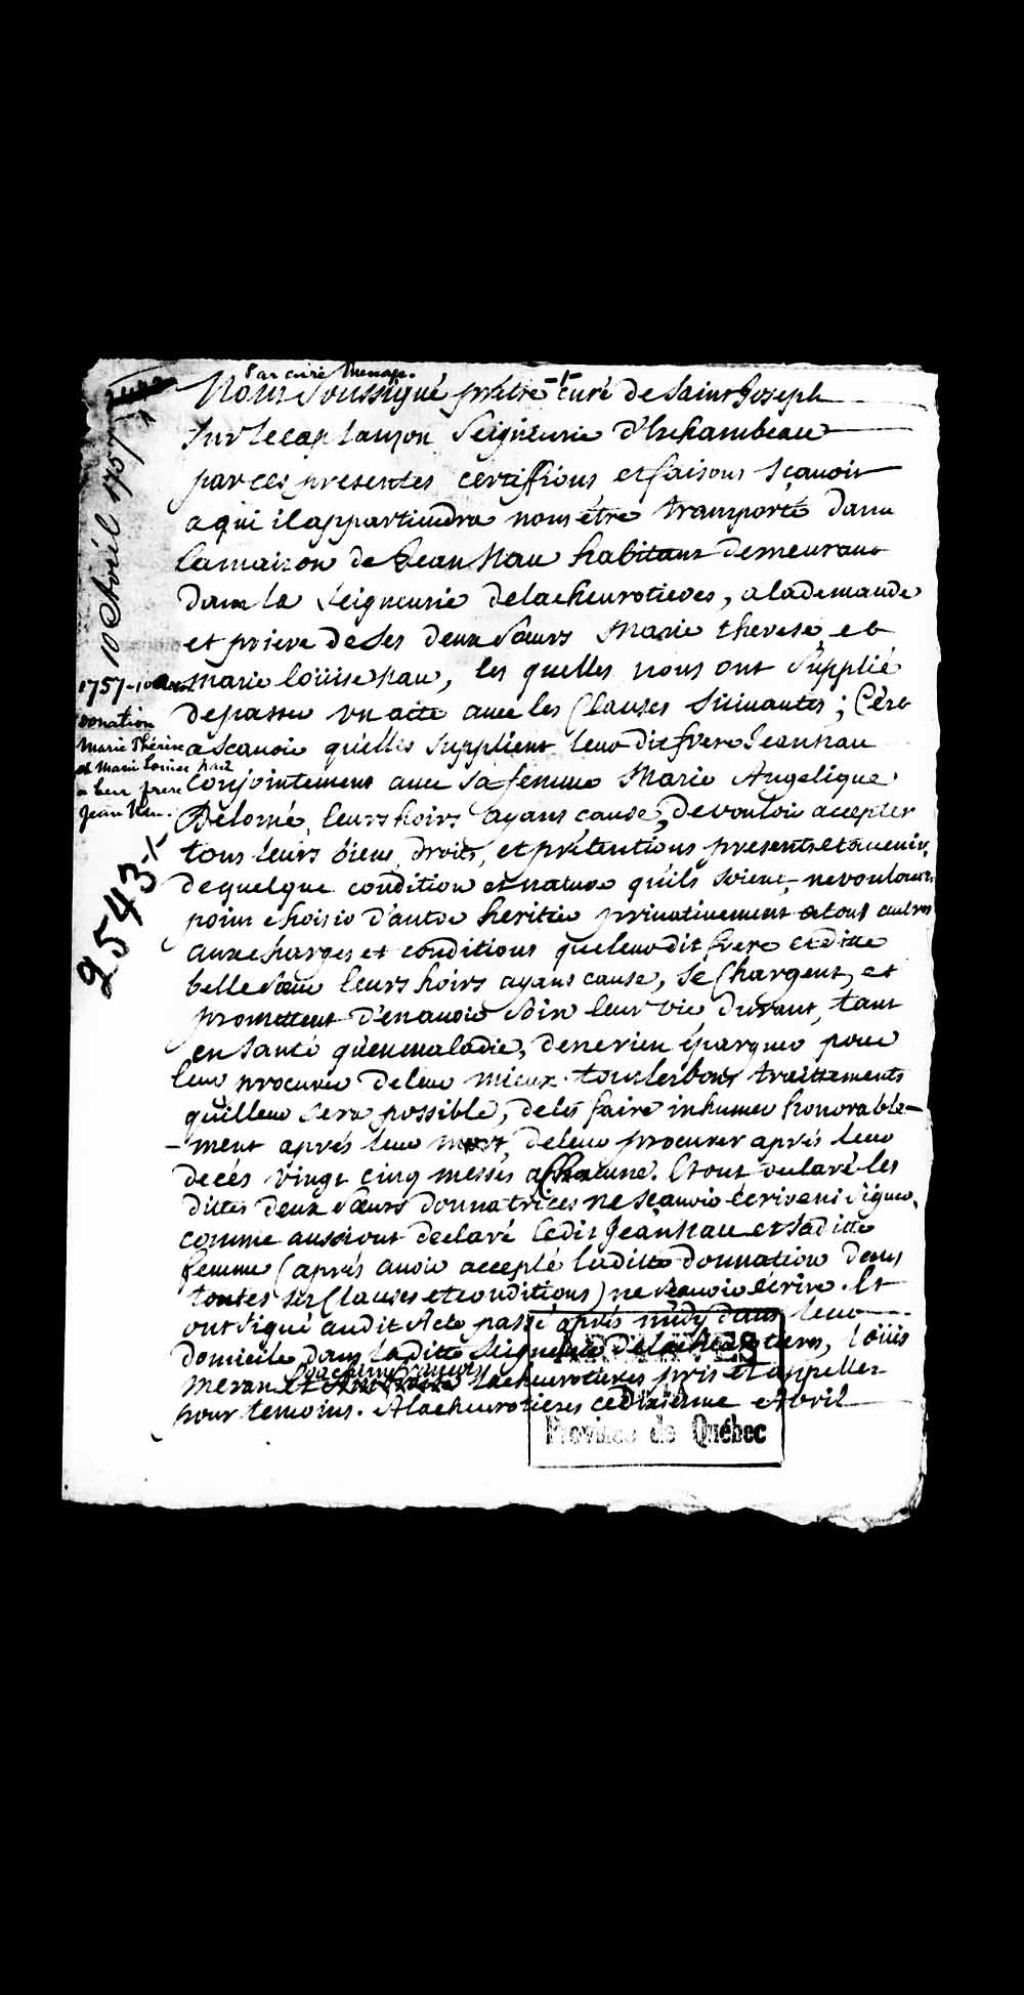 Par curé Menage.
Nous Soussigné prêtre curé de Saint Joseph
Sur le cap Lauzon Seigneurie d'Eschambeau
par ces presentes certiffions et faisons sçavoir
a qui il appartiendra nous être transporté dans
la maison de Jean Nau habitant demeurant
dans la Seigneurie delacheurotieres, a la demande
et priere de Ses deux Sœurs Marie therese et
marie loüise nau, les quelles nous ont Supplié
de passer un acte avec les Clauses Suivantes; C'est
a scavoir qu'elles supplient leur dit frere Jean nau
Conjointement avec Sa femme Marie Angelique
Delomé, leurs hoirs ayans cause, de vouloir accepter
tous leurs biens droits, et prétentions presents et avenir,
de quelque condition et nature qu'ils soient, ne voulant
point choisir d'autre heritier privativement a tous autres
aux charges et conditions que leur dit frere et ditte
belle Sœur leurs hoirs ayans cause, se Chargent, et
promettent d'en avoir Soin leur vie durant, tant
en Santé qu'en maladie, de ne rien épargner pour
leur procurer de leur mieux tous les bons traittements
qu'il leur Sera possible, de les faire inhumer honorable-
-ment aprés leur mort, de leur procurer aprés leur
decés vingt cinq messes a Chacune. Et ont declaré les
dittes deux Sœurs donnatrices ne sçavoir écrire ni signer,
comme aussi ont declaré ledit Jean nau et sa ditte
femme (aprés avoir accepté la ditte donnation dans
toutes ses Clauses et conditions) ne scavoir écrire. Et
ont signé au dit Acte passé aprés midy dans leur
domicile dans la ditte Seigneurie delacheurotieres, loüis
meran et Lacheurotieres pris et appellez
pour temoins. A lacheurotieres ce dixieme Avril
10 Avril 1757
1757-10
Donation
Marie Thérèse
et Marie Louise
a leur frere
Jean Nau.
2543
Province de Québec